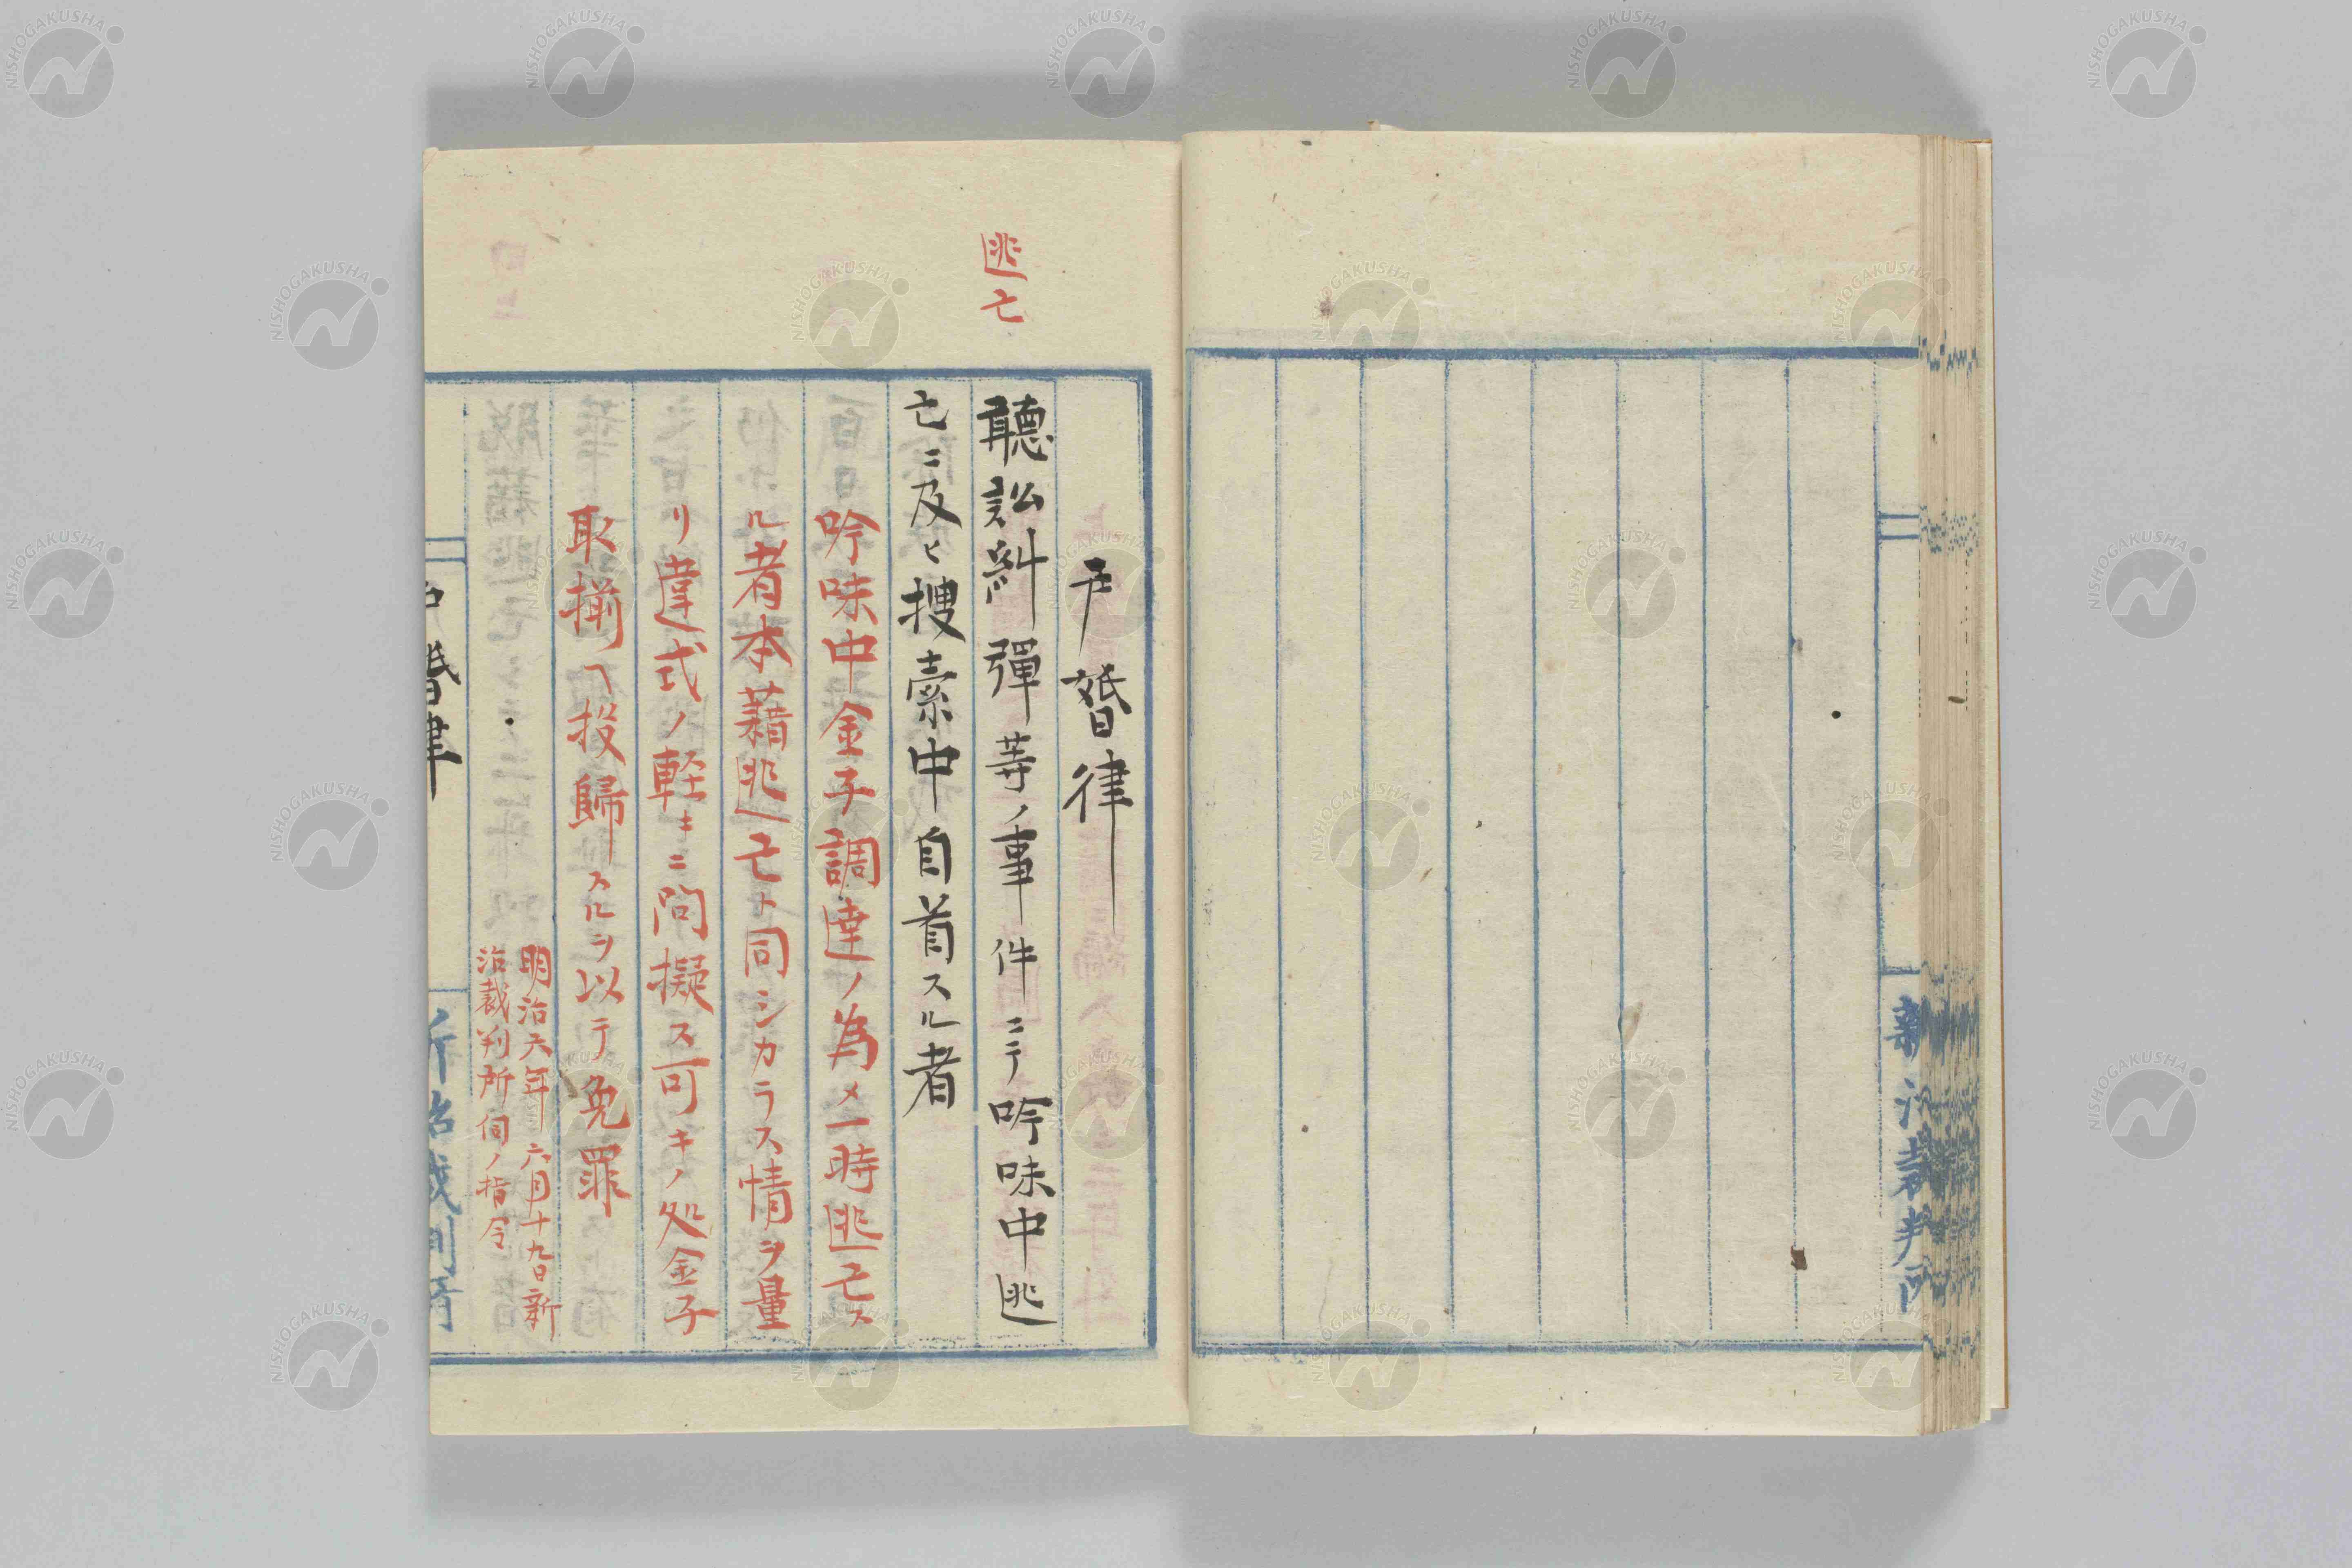 新治裁判所
逃亡
戸婚律
聽訟糾彈等ノ事件ニテ吟味中逃
亡ニ及ヒ搜索中自首スル者
吟味中金子調達ノ為メ一時逃亡ス
ル者本藉逃亡ト同シカラス情ヲ量
リ違式ノ軽キニ問擬ス可キノ処金子
取揃ヘ投歸スルヲ以テ免罪
明治六年六月十九日新
治裁判所伺ノ指令
戸婚律
新治裁判所
NISHOGAKUSHA